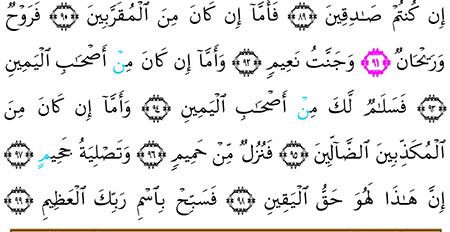 إِن كُنتُمْ صَـٰدِقِينَ ﴿٨٩﴾ فَأَمَّآ إِن كَانَ مِنَ ٱلْمُقَرَّبِينَ ﴿٩٠﴾ فَرَوْحٌ
وَرَيْحَانٌ ﴿٩١﴾ وَجَنَّتُ نَعِيمٍ ﴿٩٢﴾ وَأَمَّآ إِن كَانَ مِنْ أَصْحَـٰبِ ٱلْيَمِينِ
﴿٩٣﴾ فَسَلَـٰمٌ لَّكَ مِنْ أَصْحَـٰبِ ٱلْيَمِينِ ﴿٩٤﴾ وَأَمَّآ إِن كَانَ مِنَ
ٱلْمُكَذِّبِينَ ٱلضَّآلِّينَ ﴿٩٥﴾ فَنُزُلٌ مِّنْ حَمِيمٍ ﴿٩٦﴾ وَتَصْلِيَةُ جَحِيمٍ ﴿٩٧﴾
إِنَّ هَـٰذَا لَهُوَ حَقُّ ٱلْيَقِينِ ﴿٩٨﴾ فَسَبِّحْ بِٱسْمِ رَبِّكَ ٱلْعَظِيمِ ﴿٩٩﴾